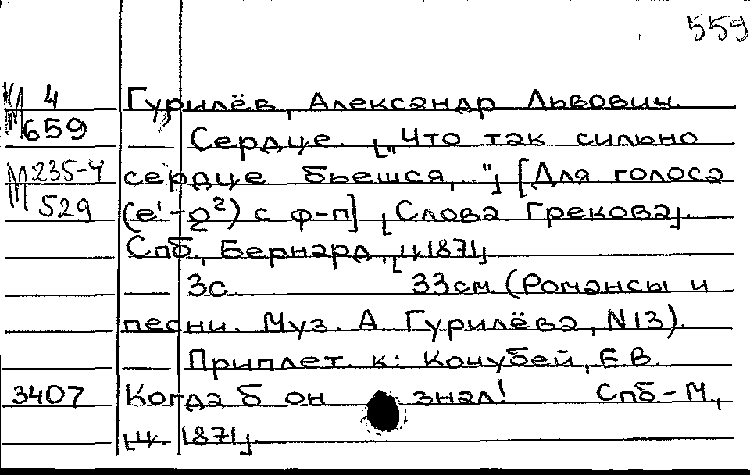 559
М 4 Гурилёв, Александр Львович.
659 Сердце. ["Что так сильно
М 235-4 сердце бьешся,.."] [Для голоса
529 (e¹-g²) с ф-п] [Слова Грекова].
Спб., Бернард, [ц.1871]
3с. 33см. (Романсы и
песни. Муз. А Гурилёва, N13).
Приплет. к: Кочубей, Е.В.
3407 Когда б он знал! Спб-М.,
[ц. 1871]